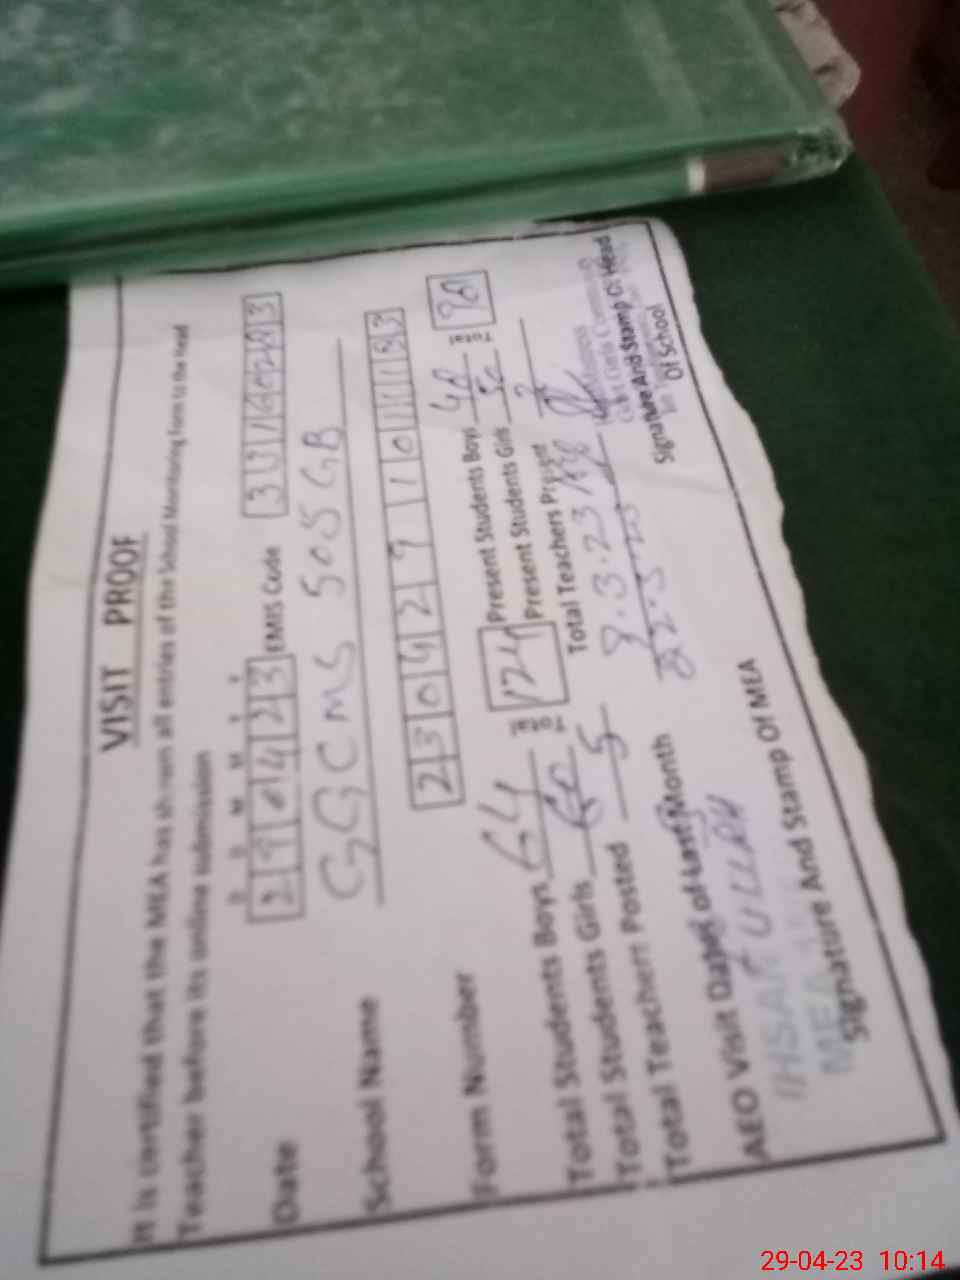 VISIT PROOF
It is certified that the MEA has shown all entries of the School Monitoring Form to the Head
Teacher before its online submission
D D M M Y Y
Date 290423 EMIS Code 33
School Name GGCMS 505 GB
Form Number 2304291011
Total Students Boys 64 Total 124 Present Students Boys 48 Total 98
Total Students Girls 60 Present Students Girls 50
Total Teachert Posted 5 Total Teachers Present
Total Teachert
AEO Visit Dates of Last Month 9.3.23
22.3.23
IHSAN ULLAH
MEA
Signature And Stamp Of MEA
Signature And Stamp Of Head
Of School
29-04-23 10:14